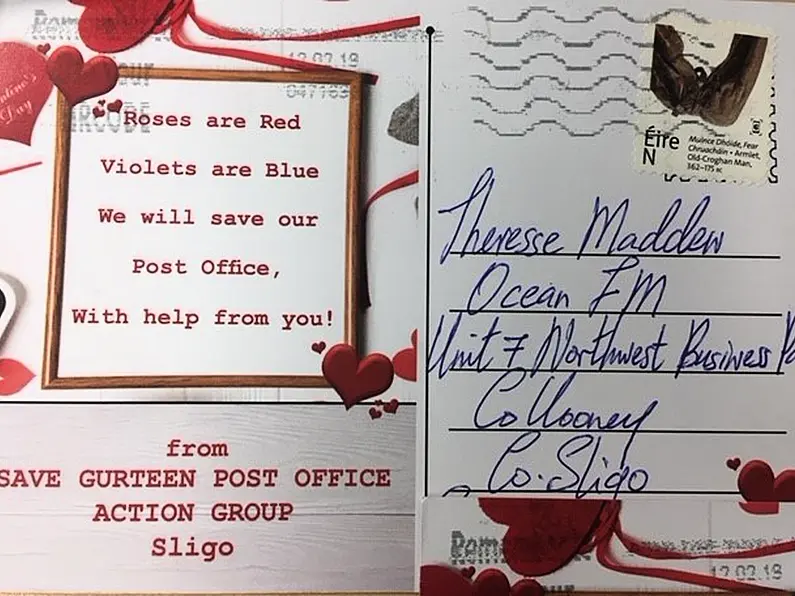 12.02.19
047169
Roses are Red
Violets are Blue
We will save our
Post Office,
With help from you!
from
SAVE GURTEEN POST OFFICE
ACTION GROUP
Sligo
Éire
N
Muince Dhóide, Fear
Chruacháin • Armlet,
Old-Croghan Man,
362–175 BC
Theresse Madden
Ocean FM
Unit 7 Northwest Business
Collooney
Co. Sligo
12.02.19